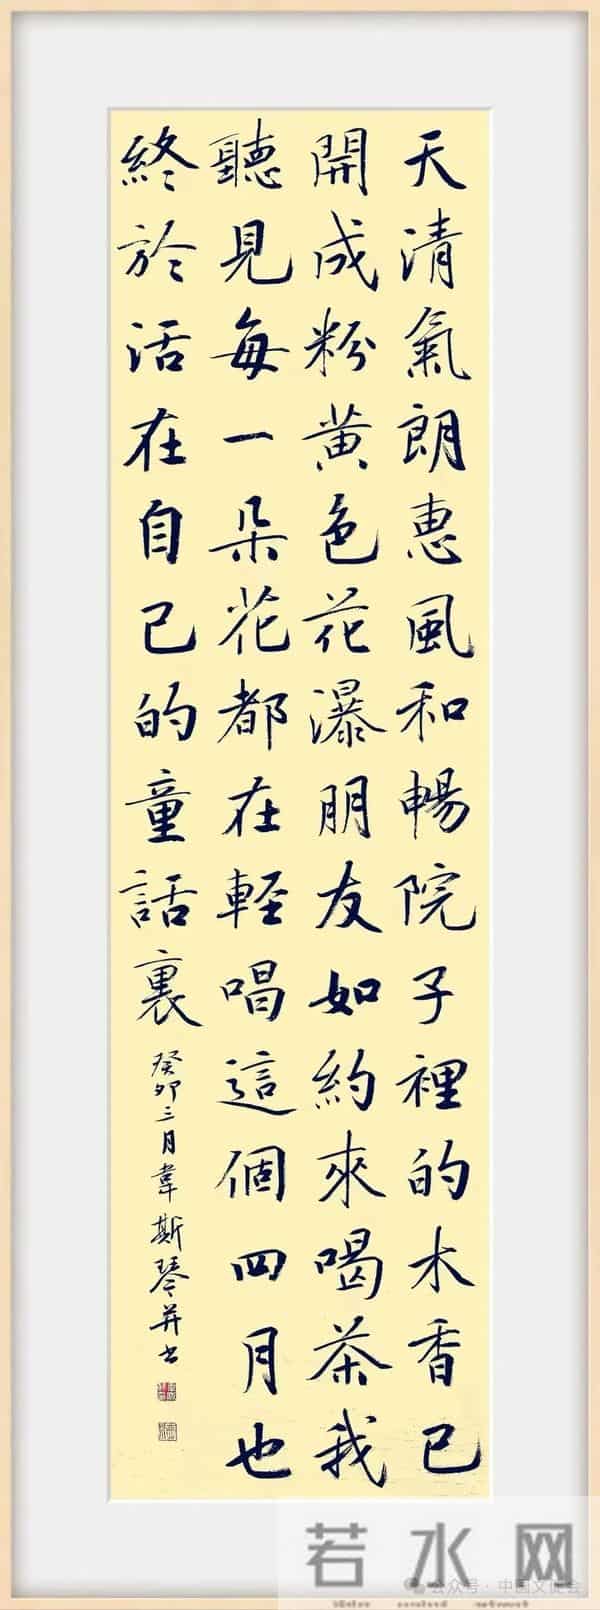 天清氣朗惠風和暢院子裡的木香已
開成粉黄色花瀑朋友如約來喝茶我
聽見每一朵花都在輕唱這個四月也
終於活在自己的童話裏
癸卯三月韋斯琴并书
若水网
公众号·中国文促会